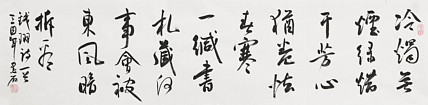 冷燭无
煙绿蜡
干芳心
猶卷怯
春寒
一缄書
札藏何
事會被
東風暗
拆看
錢珝詩一首